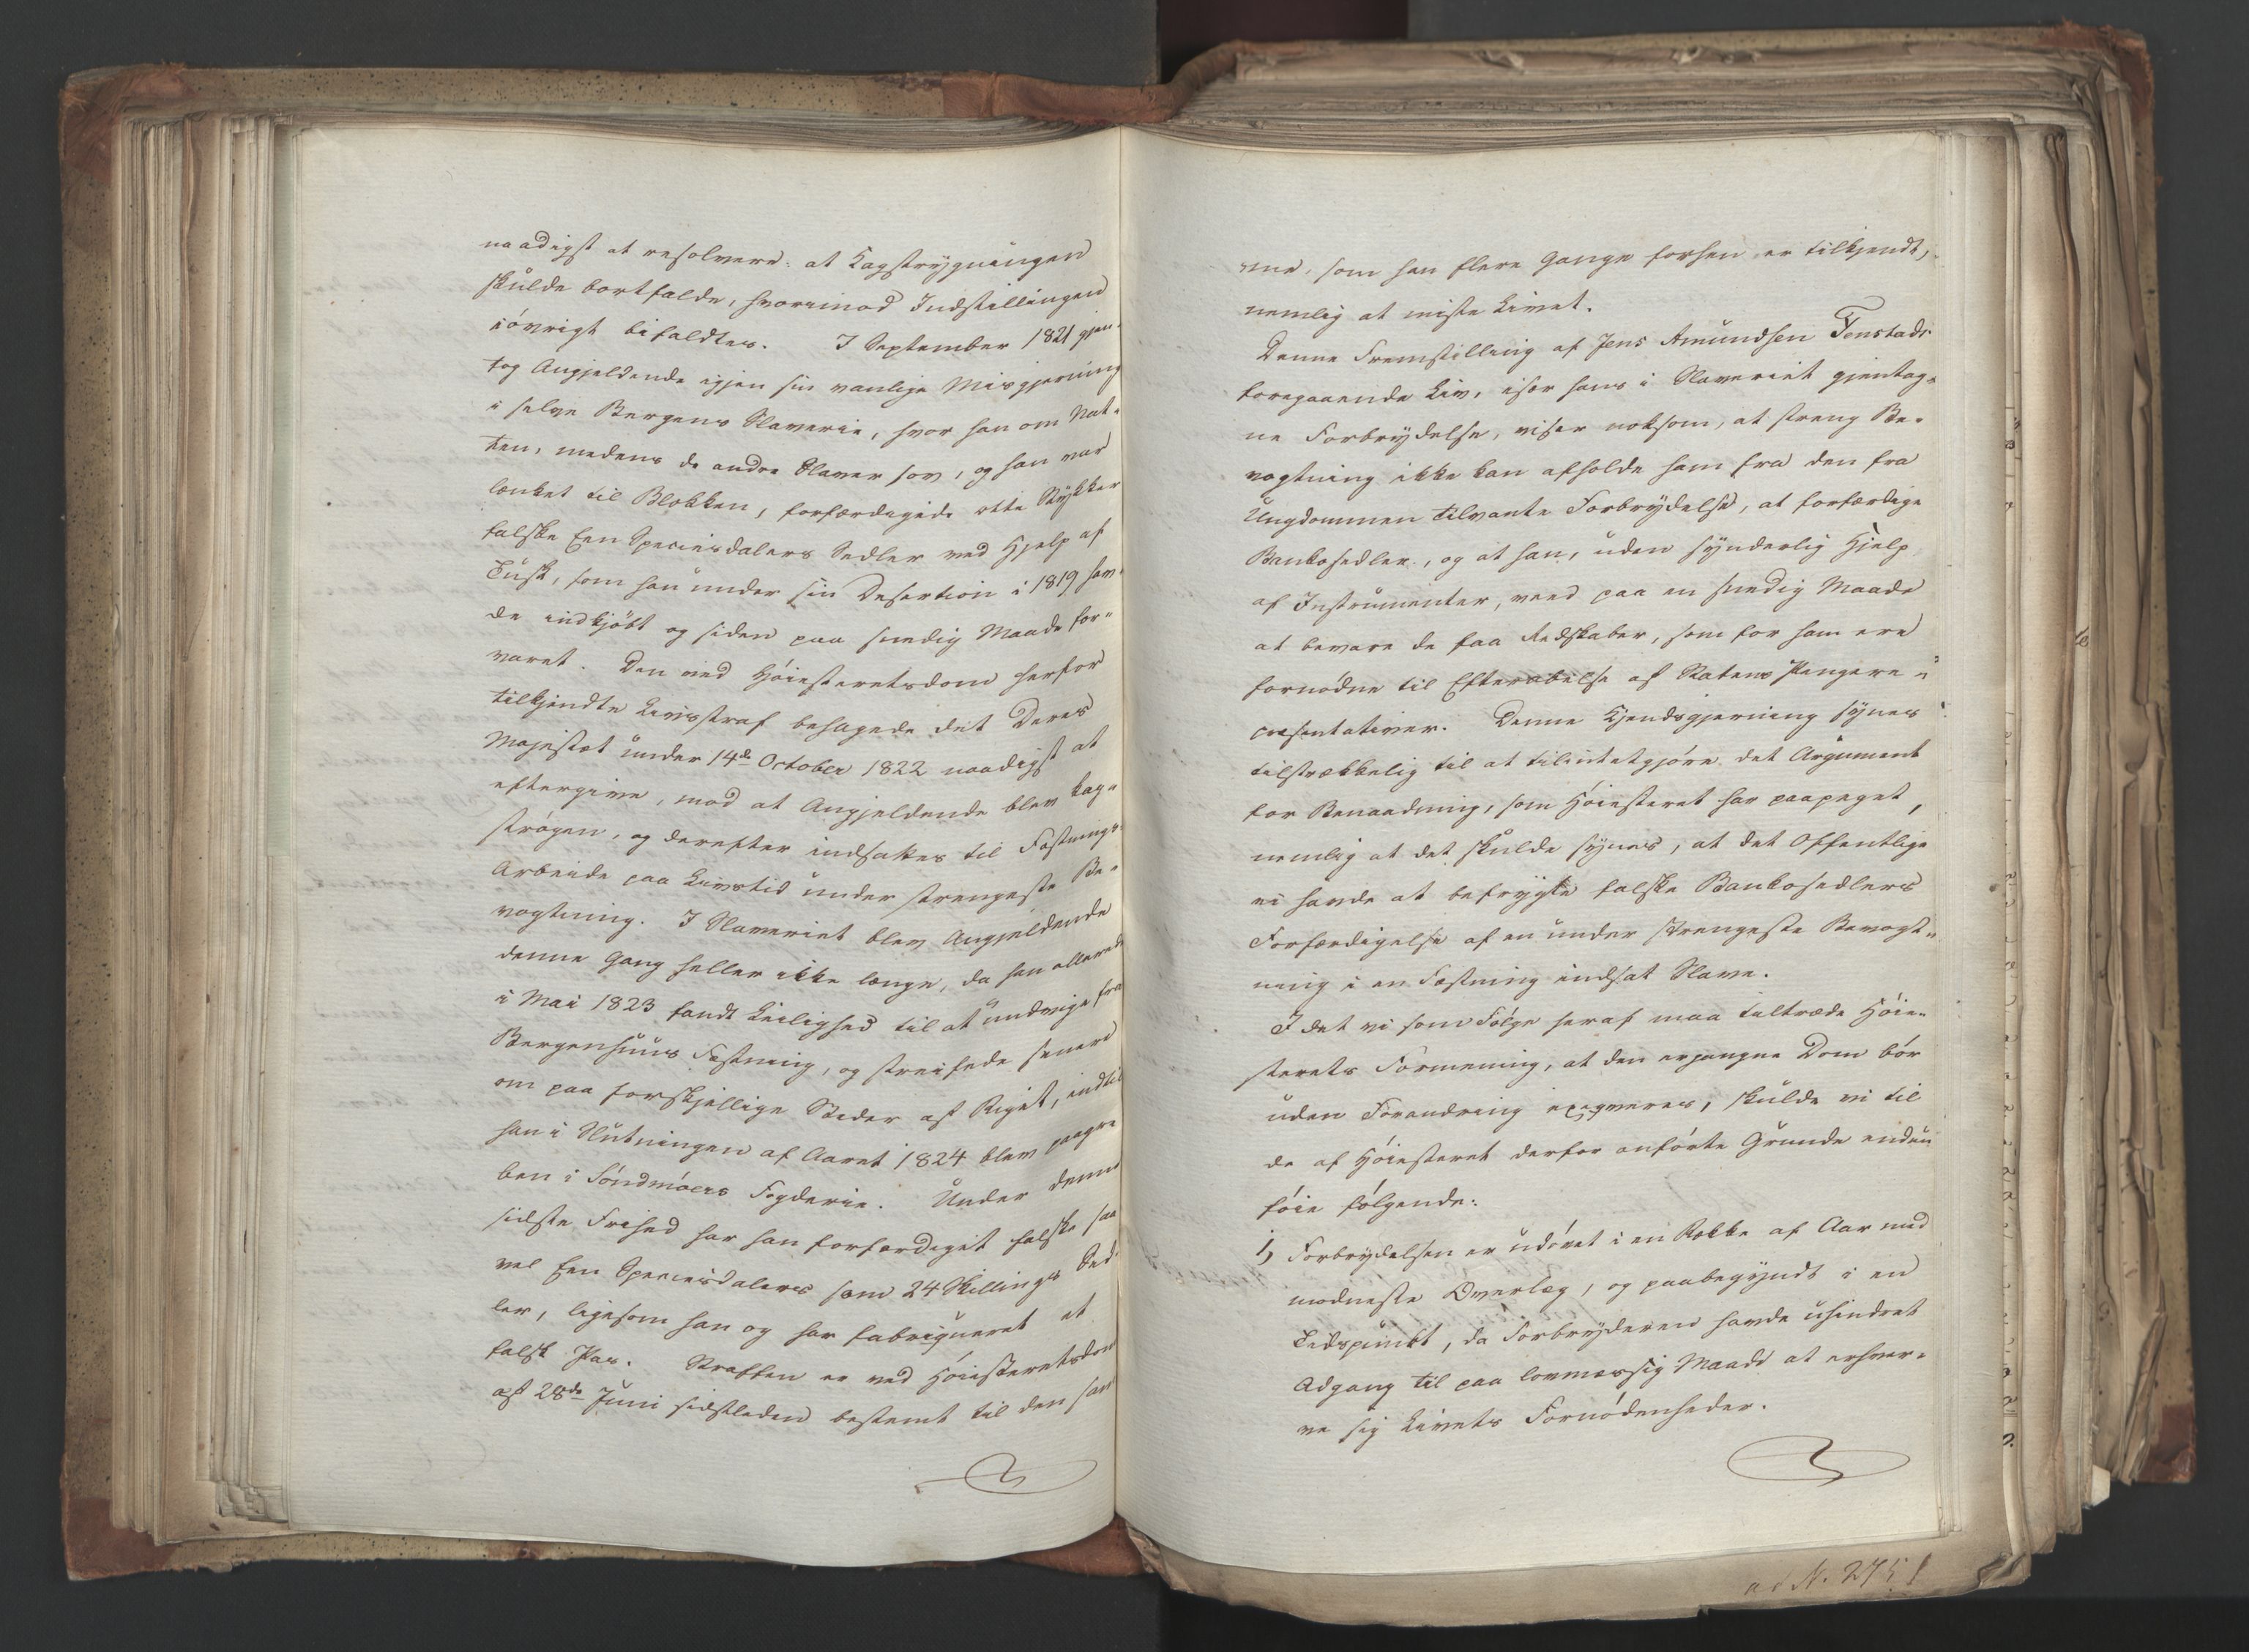 naadigst at resolvere: at Kagstrygningen
skulde bortfalde, hvorimod Indstillingen
iövrigt bifaldtes. I September 1821 gjen-
tog Angjeldende igjen sin vanlige Misgjerning
i selve Bergens Slaverie, hvor han om Nat-
ten, medens de andre Slaver sov, og han var
lænket til Blokken, forfærdigede otte Stykker
falske Een Speciesdalers Sedler ved Hjelp af
Tusk, som han under sin Desertion i 1819 hav-
de indkjöbt og siden paa snedig Maade for-
varet. Den ved Höiesteretsdom herfor
tilkjendte Livsstraf behagede det Deres
Majestæt under 14de October 1822 naadigst at
eftergive, mod at Angjeldende blev kag-
strögen, og derefter indsattes til Fæstnings-
Arbeide paa Livstid under strengeste Be-
vogtning. I Slaveriet blev Angjeldende
denne Gang heller ikke længe, da han allerede
i Mai 1823 fandt Leilighed til at undvige fra
Bergenhuus Fæstning, og streifede senere
om paa forskjellige Steder af Riget, indtil
han i Slutningen af Aaret 1824 blev paagre
ben i Söndmöers Fogderie. Under denne
sidste Frihed har han forfærdiget falske saa
vel Een Speciesdalers som 24 Skillings Sed-
ler, ligesom han og har fabriqueret et
falsk Pas. Straffen er ved Höiesteretsdom
af 28de Juni sidstleden bestemt til den sam
me, som han flere Gange forhen er tilkjendt,
nemlig at miste Livet.
Denne Fremstilling af Jens Amundsen Tenstads
foregaaende Liv, især hans i Slaveriet gjentag-
ne Forbrydelse, viser noksom, at streng Be-
vogtning ikke kan afholde ham fra den fra
Ungdommen tilvante Forbrydelse, at forfærdige
Bankosedler, og at han, uden synderlig Hjelp
af Instrumenter, veed paa en snedig Maade
at bevare de faa Redskaber, som for ham ere
fornödne til Efterabelse af Statens Pengere-
præsentativer. Denne Kjendsgjerning synes
tilstrækkelig til at tilintetgjöre det Argument
for Benaadning, som Höiesteret har paapeget,
nemlig at det skulde synes, at det Offentlige
ei havde at befrygte falske Bankosedlers
Forfærdigelse af en under strengeste Bevogt-
ning i en Fæstning indsat Slave.
I det vi som Fölge heraf maa tiltræde Höie-
sterets Formening, at den ergangne Dom bör
uden Forandring exeqveres, skulde vi til
de af Höiesteret derfor anförte Grunde endnu
föie fölgende:
1) Forbrydelsen er udövet i en Række af Aar med
modneste Overlæg, og paabegyndt i en
Tidspunkt, da Forbryderen havde uhindret
Adgang til paa lovmæssig Maade at erhver-
ve sig Livets Fornödenheder.
ad N. 2751